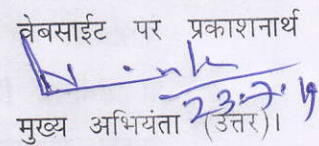 वेबसाईट पर प्रकाशनार्थ
23.7.19
मुख्य अभियंता (उत्तर)।